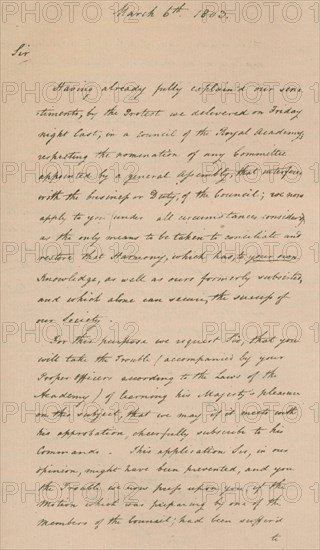 March 6th. 1803.
Sir
Having already fully explain'd our sen-
timents, by the Protest we delivered on Friday
night last, in a council of the Royal Academy,
respecting the nomination of any Committee
appointed by a general Assembly, that interferes
with the business or Duty, of the Council; we now
apply to you (under all circumstances considerd)
as the only means to be taken to conciliate and
restore that Harmony, which has, to your own
Knowledge, as well as ours formerly subsisted,
and which alone can secure, the success of
our Society.
For this purpose we request Sir, that you
will take the Trouble (accompanied by your
Proper Officers according to the Laws of the
Academy) of learning his Majesty's pleasure
on this subject, that we may if it meets with
his approbation, chearfully subscribe to his
Commands. This application Sir, in our
opinion, might have been prevented, and you
the Trouble we now press upon you, if the
Motion which was preparing by one of the
Members of the Council; had been suffer'd
to